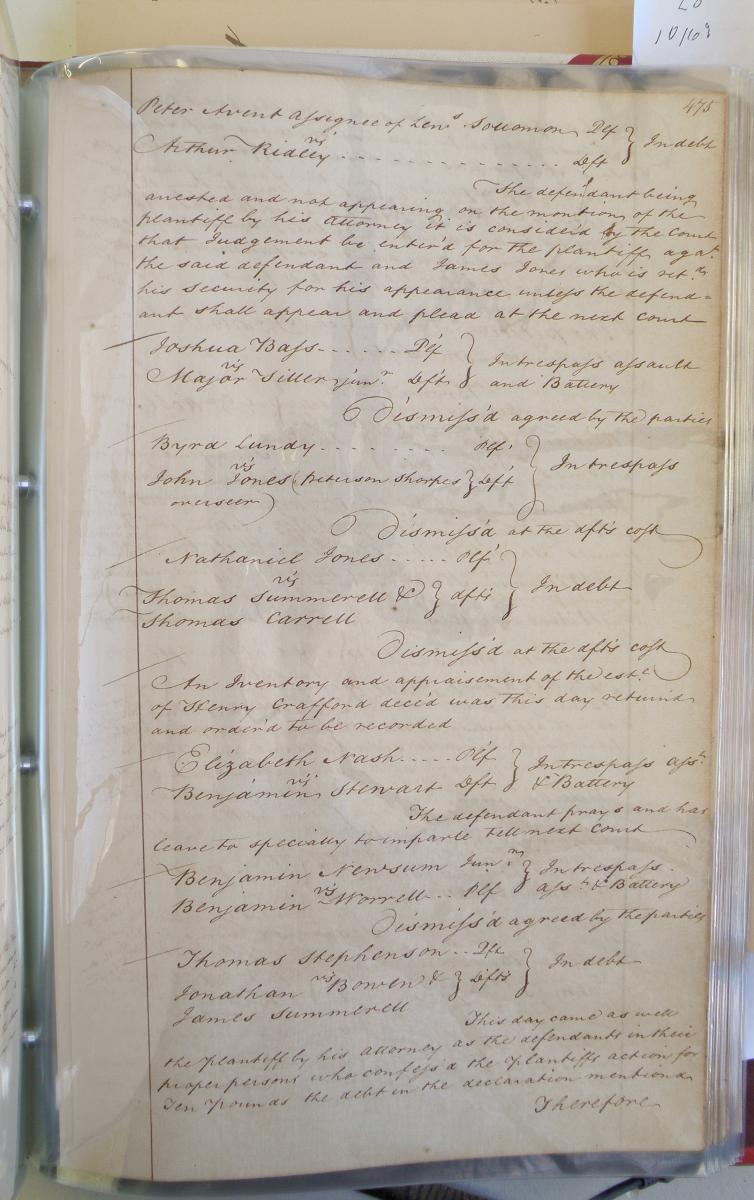 10/69
475
Peter Avent assignee of Lew.s Solomon Plf } In debt
vs
Arthur Ridley . . . . . . . . . . . . . . Deft
The defendant being
arrested and not appearing on the montion of the
plantiff by his attorney it is considerd by the Court
that Judgement be enter'd for the plantiff agat.
the said defendant and James Jones who is ret.d
his security for his appearance unless the defend=
ant shall appear and plead at the next Court
Joshua Bass . . . . . . Plf } In trespass assault
vs
Major Tiller jun.r Deft and Battery
Dismiss'd agreed by the parties
Byrd Lundy . . . . . . . . . Plf } In trespass
vs
John Jones (Peterson Sharpes } Deft
overseer)
Dismiss'd at the dfts cost
Nathaniel Jones . . . . . Plf } In debt
vs
Thomas Summerell & } dfts
Thomas Carrell
Dismiss'd at the dfts cost
An Inventory and appraisement of the est.e
of Henry Crafford dece'd was this day returnd
and order'd to be recorded
Elizabeth Nash . . . . . Plf } In trespass ass.t
vs
Benjamin Stewart Dft & Battery
The defendant prays and has
leave to specially to imparle till next Court
Benjamin Newsum Jun.r } In trespass
vs
Benjamin Worrell . . Plf ass.t & Battery
Dismiss'd agreed by the parties
Thomas Stephenson . . Plt } In debt
vs
Jonathan Bowen & } Dfts
James Summerell
This day came as well
the plantiff by his Attorney as the defendants in their
proper persons who confess'd the plantiffs action for
Ten pounds the debt in the declaration mentiond
Therefore